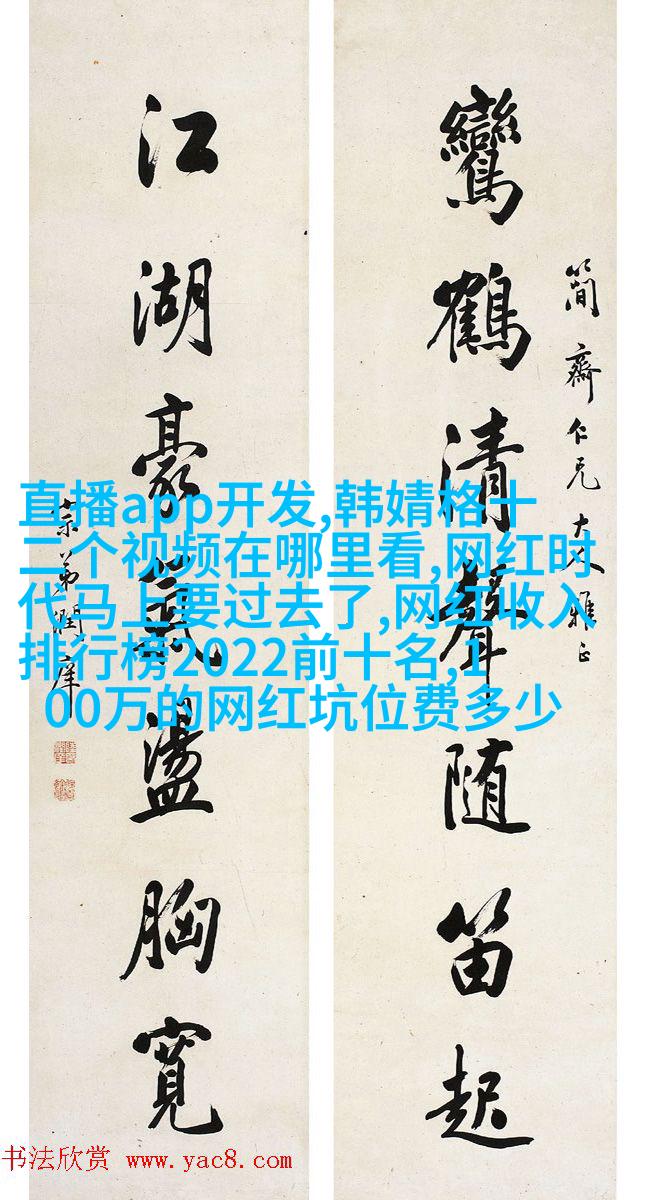 簡齋仁兄大人雅正
鸞鶴清聲随笛起
江湖豪氣盪胸寬
宗弟潤庠
直播app开发,韩婧格十
二个视频在哪里看,网红时
代马上要过去了,网红收入
排行榜2022前十名,1
00万的网红坑位费多少
书法欣赏 www.yac8.com